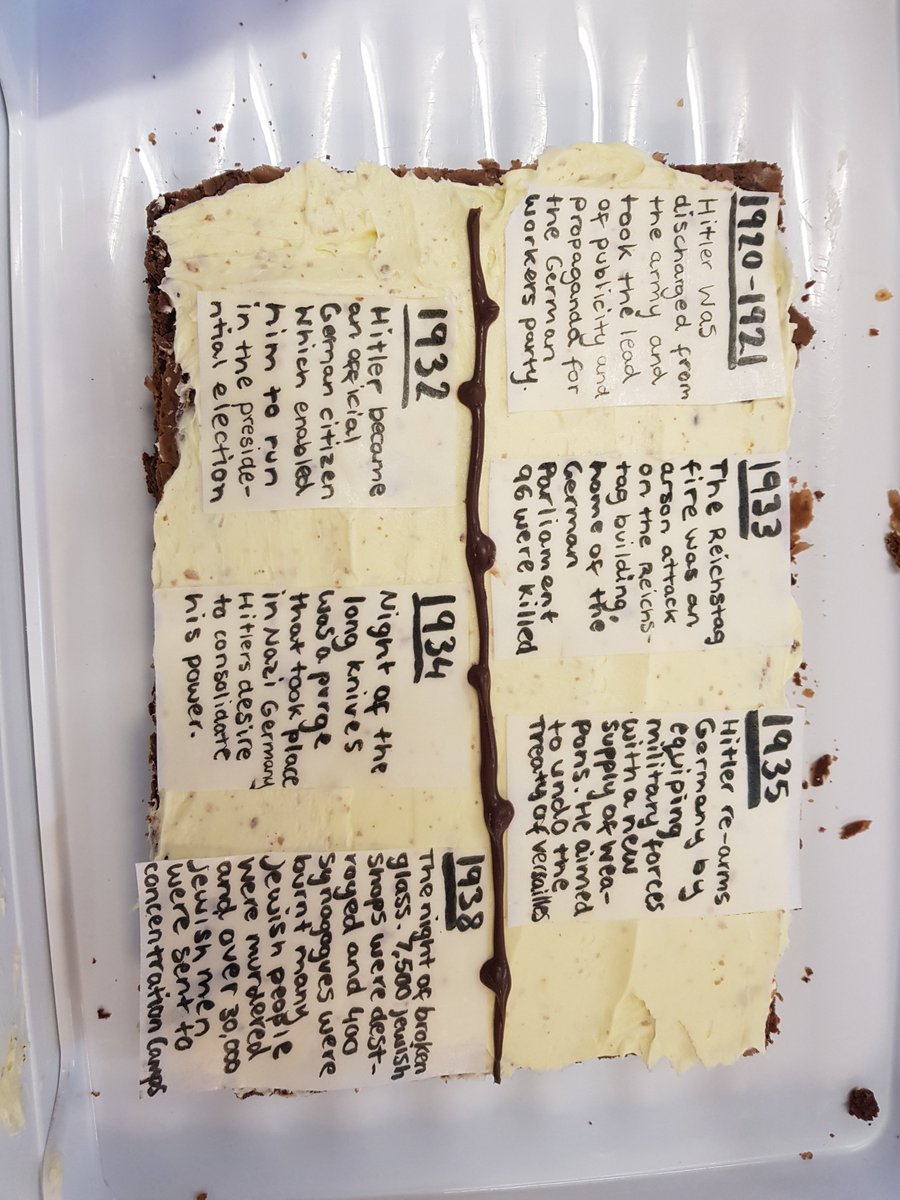 1920-1921
Hitler was
discharged from
the army and
took the lead
of publicity and
propaganda for
the German
workers party.
1932
Hitler became
an official
German citizen
which enabled
him to run
in the preside-
ntial election
1933
The Reichstag
fire was an
arson attack
on the Reichs-
tag building,
home of the
German
Parliament
96 were killed
1934
Night of the
long knives
was a purge
that took place
in Nazi Germany
Hitlers desire
to consolidate
his power.
1935
Hitler re-arms
Germany by
equiping
military forces
with a new
supply of wea-
pons. He aimed
to undo the
Treaty of versailles
1938
The night of broken
glass. 7,500 jewish
shops were dest-
royed and 400
synagogues were
burnt many
Jewish people
were murdered
and over 30,000
jewish men
were sent to
concentration camps